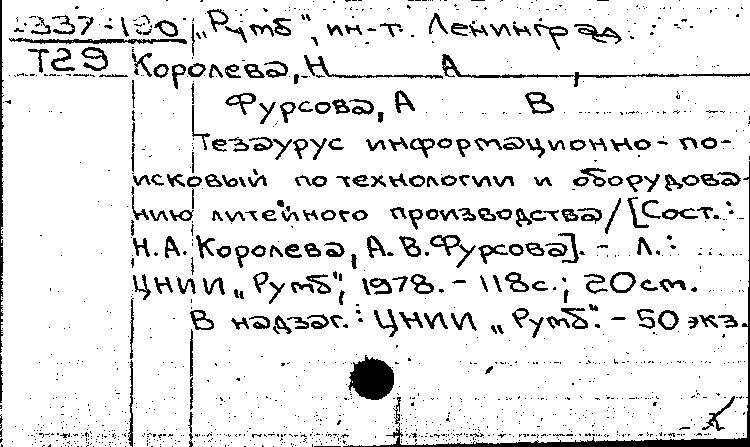 337-130 „Румб“, ин-т. Ленинград.
Т29 Королева, Н А ,
Фурсова, А В
Тезаурус информационно-по-
исковый по технологии и оборудова-
нию литейного производства/[Сост.:
Н.А. Королева, А.В. Фурсова]. - Л.:
ЦНИИ „Румб“, 1978. - 118с.; 20см.
В надзаг.: ЦНИИ „Румб“. - 50 экз.